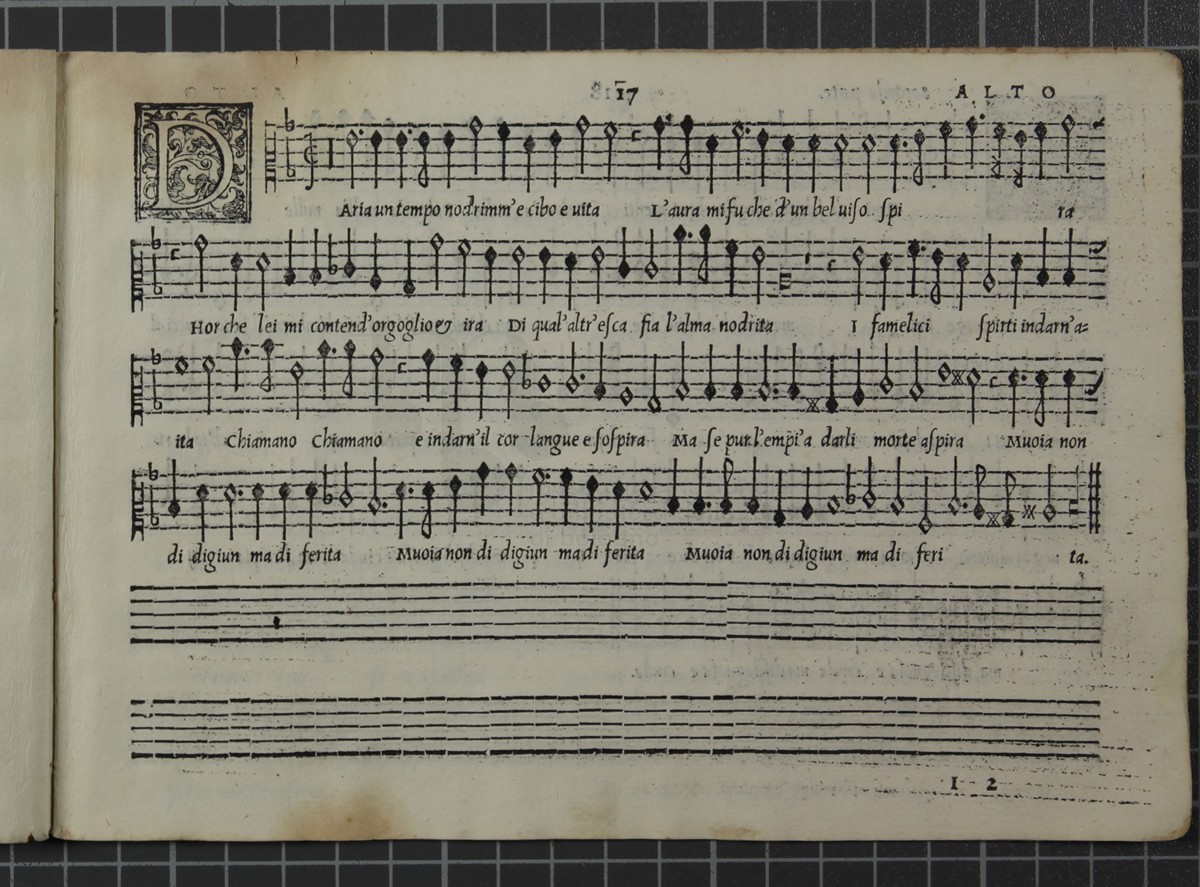 17 ALTO
D Aria un tempo nodrimm'e cibo e uita L'aura mi fu che d'un bel uiso spi ra
Hor che lei mi contend'orgoglio & ira Di qual'altr'esca fia l'alma nodrita I famelici spirti indarn'a=
ita Chiamano Chiamano e indarn'il cor langue e sospira Ma se pur l'empi'a darli morte aspira Muoia non
di digiun ma di ferita Muoia non di digiun ma di ferita Muoia non di digiun ma di feri ta.
I 2